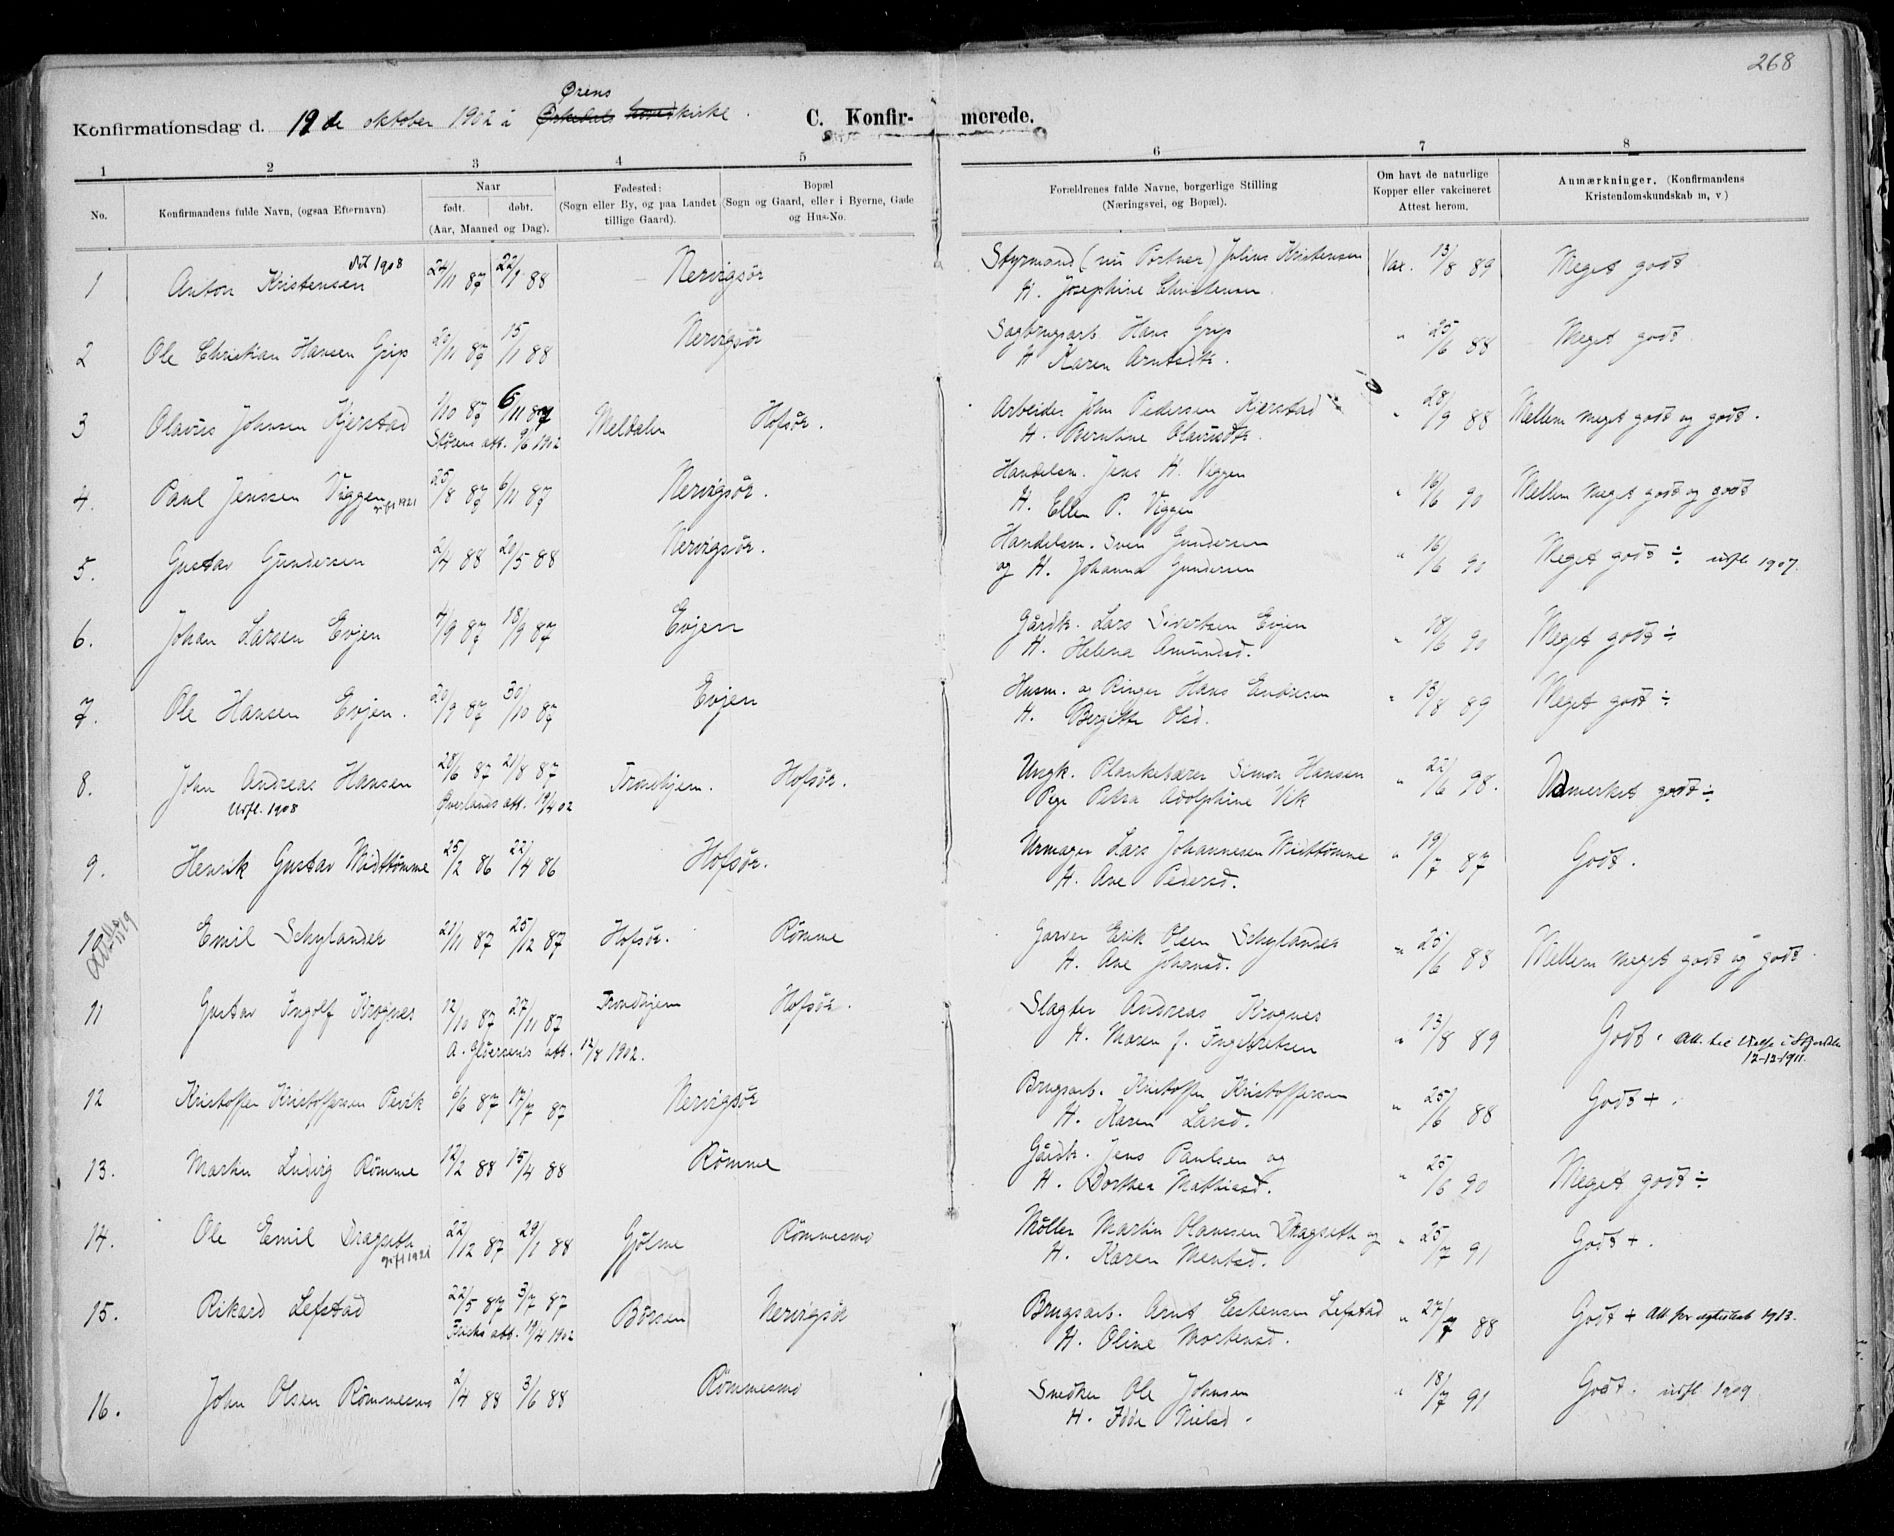 268
Ørens
Konfirmationsdag d. 19de oktober 1902 i Ørkedals hovedkirke. C. Konfir- merede.
1 2 3 4 5 6 7 8
No.
Konfirmandens fulde Navn, (ogsaa Efternavn)
Naar
født. døbt.
(Aar, Maaned og Dag).
Fødested:
(Sogn eller By, og paa Landet
tillige Gaard).
Bopæl
(Sogn og Gaard, eller i Byerne, Gade
og Hus-No.
Forældrenes fulde Navne, borgerlige Stilling
(Næringsvei, og Bopæl).
Om havt de naturlige
Kopper eller vakcineret
Attest herom.
Anmærkninger, (Konfirmandens
Kristendomskundskab m, v)
1 Anton Kristensen 1908 24/11 87 22/1 88 Nervigsør Styrmand (nu Portner) Johns Kristensen Vax. 13/8 89 Meget godt
H. Josephine Christensen
2 Ole Christian Hansen Grip 20/11 87 15/1 88 Nervigsør Sagbrugsarb. Hans Grip " 25/6 88 Meget godt
H. Karen Arntsdtr.
3 Olavus Johnsen Kjerstad /10 87 6/11 87 Meldalen Hofsør. Arbeider John Pedersen Kjerstad " 28/9 88 Mellem meget godt og godt.
Størens att. 9/6 1902 H. Olavusdtr.
4. Paul Jenssen Viggen gift 1921 25/8 87 6/11 87 Nervigsør. Handelsm. Jens H. Viggen " 16/6 90 Mellem meget godt og godt
H. Ellen P. Viggen
5. Gustav Gundersen 2/4 88 20/5 88 Nervigsør. Handelsm. Sven Gundersen " 16/6 90 Meget godt ÷ utfl. 1907.
og H. Johanna Gundersen
6. Johan Larsen Evjen 4/9 87 18/9 87 Evjen Gårdb. Lars Sivertsen Evjen " 18/6 90 Meget godt ÷
H. Helena Amundsd.
7. Ole Hansen Evjen. 20/9 87 30/10 87 Evjen Husm. og Ringer Hans Endresen " 13/8 89 Meget godt ÷
H. Bergitte Olsd.
8. John Andreas Hansen 28/6 87 21/8 87 Trondhjem. Hofsør. Ungk. Plankebærer Simon Hansen " 22/6 98. Udmerket godt ÷
Utfl. 1908 att. 19/4 02 Pige Petra Adolphine Vik
9. Henrik Gustav Midttømme 25/2 86 22/4 86 Hofsør. Urmager Lars Johannesen Midttømme " 19/7 87 Godt.
H. Ane Pedersd.
10 Emil Schylander 21/11 87 25/12 87 Hofsør. Rømme Garver Erik Olsen Schylander " 25/6 88 Mellem meget godt og godt.
H. Ane Johansd.
11 Gustav Ingolf Krognes 12/10 87 27/11 87 Trondhjem Hofsør. Slagter Andreas Krognes " 13/8 89 Godt.
A. att. 12/8 1902. H. Maren J. Ingebretsen 12-12-1911.
12 Kristoffer Kristoffersen Pevik 6/6 87 17/7 87 Nervigsør Brugsarb. Kristoffer Kristoffersen " 25/6 88 Godt +.
H. Karen Larsd.
13. Martin Ludvig Rømme 12/2 88 15/4 88 Rømme Gårdb. Jens Paulsen og " 25/6 90 Meget godt ÷
H. Dorthea Mathiasd.
14. Ole Emil Dragseth gift 1921 22/12 87 29/1 88 Gjølme Rømmesmo Møller Martin Olaussen Dragseth og " 25/7 91 Godt +.
H. Karen Mentsd.
15. Rikard Lefstad 22/5 87 3/7 87 Børsen Nervigsør Brugsarb. Arnt Estensen Lefstad " 27/7 88 Godt + Att. for egteskab 1913.
att. 19/4 1902 H. Oline Mortensd.
16. John Olsen Rømmesmo 2/4 88 3/6 88 Rømmesmo Snedker Ole Johnsen " 18/7 91 Godt. utfl 1909
H. Nielsd.